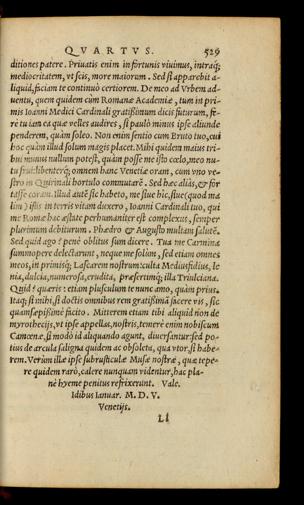 QVARTVS. 529
ditiones patere. Priuatis enim in fortunis viuimus, intraq;
mediocritatem, vt scis, more maiorum. Sed si apparebit a-
liquid, faciam te continuò certiorem. De meo ad Vrbem ad-
uentu, quem quidem cùm Romanæ Academiæ, tum in pri-
mis Ioanni Medici Cardinali gratissimum dicis futurum, fe-
rè tu iam ea quæ velles audires, si paulò minus ipse aliunde
penderem, quàm soleo. Non enim sentio cum Bruto tuo, cui
hoc quàm illud solum magis placet. Mihi quidem maius tri-
bui munus nullum potest, quàm posse me isto cœlo, meo nu-
tu frui: libenterq; omnem hanc Venetiæ oram, cum vno ve-
stro in Quirinali hortulo commutare. Sed hæc aliàs, & for
tasse coram. Illud autē sic habeto, me siue hic, siue (quod ma
lim) istis in terris vitam duxero, Ioanni Cardinali tuo, qui
me Romæ hac æstate perhumaniter est complexus, semper
plurimùm debiturum. Phædro & Augusto multam salutē.
Sed quid ago? penè oblitus sum dicere. Tua me Carmina
summopere delectarunt, neque me solùm, sed etiam omnes
meos, in primisq; Lascarem nostrum: culta Mediusfidius, le-
nia, dulcia, numerosa, erudita, præsertimq; illa Triuulciana.
Quid? quæris: etiam plusculum te nunc amo, quàm prius.
Itaq; si mihi, si doctis omnibus rem gratissimā facere vis, sic
quamsæpissimè facito. Mitterem etiam tibi aliquid non de
myrothecijs, vt ipse appellas, nostris, temerè enim nobiscum
Camœnæ, si modò id aliquando agunt, diuersantur: sed po-
tius de arcula saligna quidem ac obsoleta, qua vtor, si habe-
rem. Verùm illæ ipse subrusticulæ Musæ nostræ, quæ tepe-
re quidem rarò, calere nunquam videntur, hac pla-
nè hyeme penitus refrixerunt. Vale.
Idibus Ianuar. M. D. V.
Venetijs.
Ll